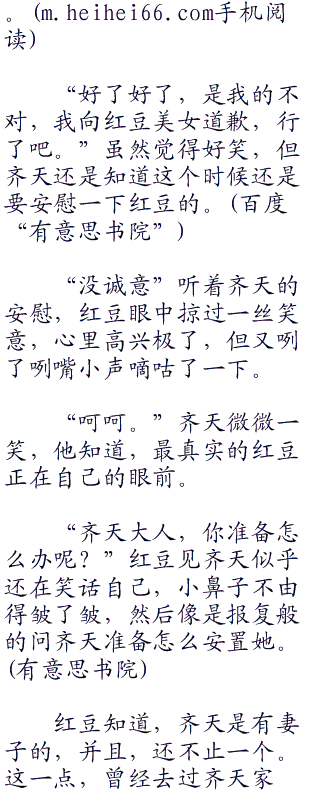 。(m.heihei66.com手机阅
读)
“好了好了，是我的不
对，我向红豆美女道歉，行
了吧。”虽然觉得好笑，但
齐天还是知道这个时候还是
要安慰一下红豆的。(百度
“有意思书院”)
“没诚意”听着齐天的
安慰，红豆眼中掠过一丝笑
意，心里高兴极了，但又咧
了咧嘴小声嘀咕了一下。
“呵呵。”齐天微微一
笑，他知道，最真实的红豆
正在自己的眼前。
“齐天大人，你准备怎
么办呢？”红豆见齐天似乎
还在笑话自己，小鼻子不由
得皱了皱，然后像是报复般
的问齐天准备怎么安置她。
(有意思书院)
红豆知道，齐天是有妻
子的，并且，还不止一个。
这一点，曾经去过齐天家